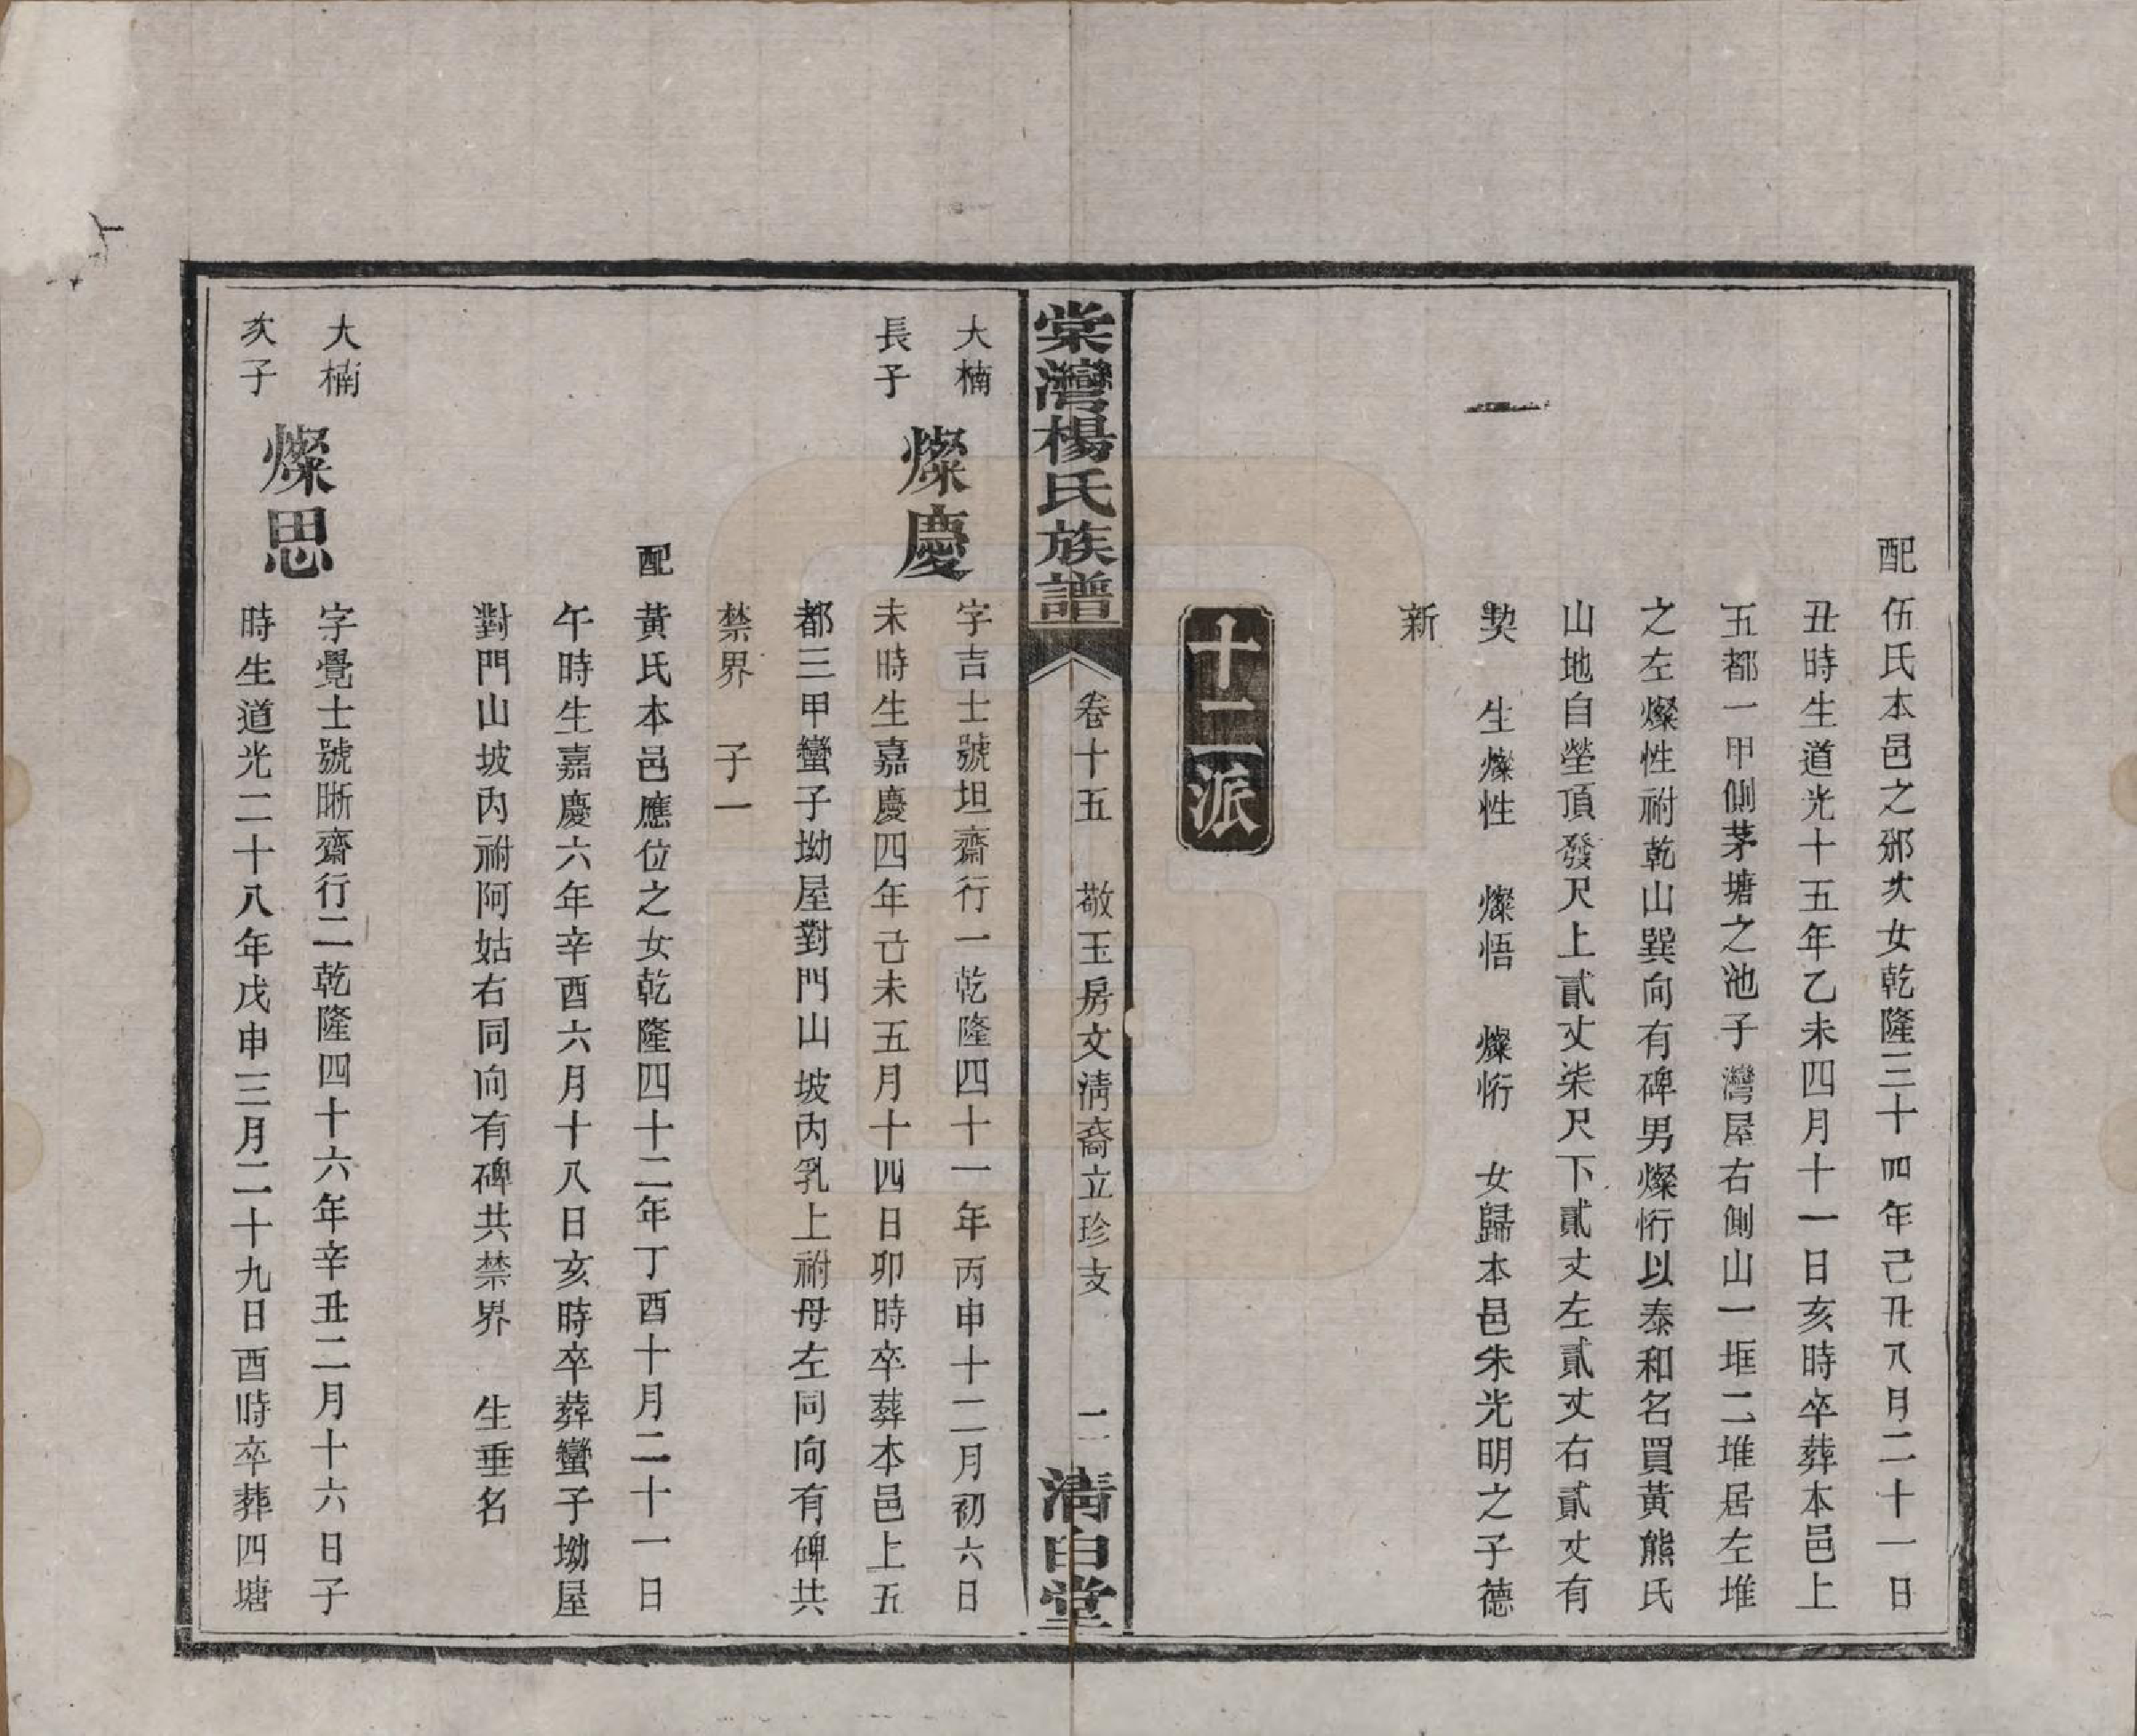 配伍氏本邑之邠次女乾隆三十四年己丑八月二十一日
丑時生道光十五年乙未四月十一日亥時卒葬本邑上
五都一甲側茅塘之池子灣屋右側山一框二堆居左堆
之左燦性祔乾山巽向有碑男燦恒以泰和名買黃熊氏
山地自塋頂發尺上貳丈柒尺下貳丈左貳丈右貳丈有
契 生燦性 燦悟 燦恒 女歸本邑朱光明之子德
新
十二派
棠灣楊氏族譜 卷十五 敬玉房文清裔立珍支 二 清白堂
大楠
長子
燦慶
字吉士號坦齋行一乾隆四十一年丙申十二月初六日
未時生嘉慶四年己未五月十四日卯時卒葬本邑上五
都三甲蠻子坳屋對門山坡內乳上祔母左同向有碑共
禁界 子一
配黃氏本邑應位之女乾隆四十二年丁酉十月二十一日
午時生嘉慶六年辛酉六月十八日亥時卒葬蠻子坳屋
對門山坡內祔阿姑右同向有碑共禁界 生垂名
大楠
次子
燦思
字覺士號晰齋行二乾隆四十六年辛丑二月十六日子
時生道光二十八年戊申三月二十九日酉時卒葬四塘